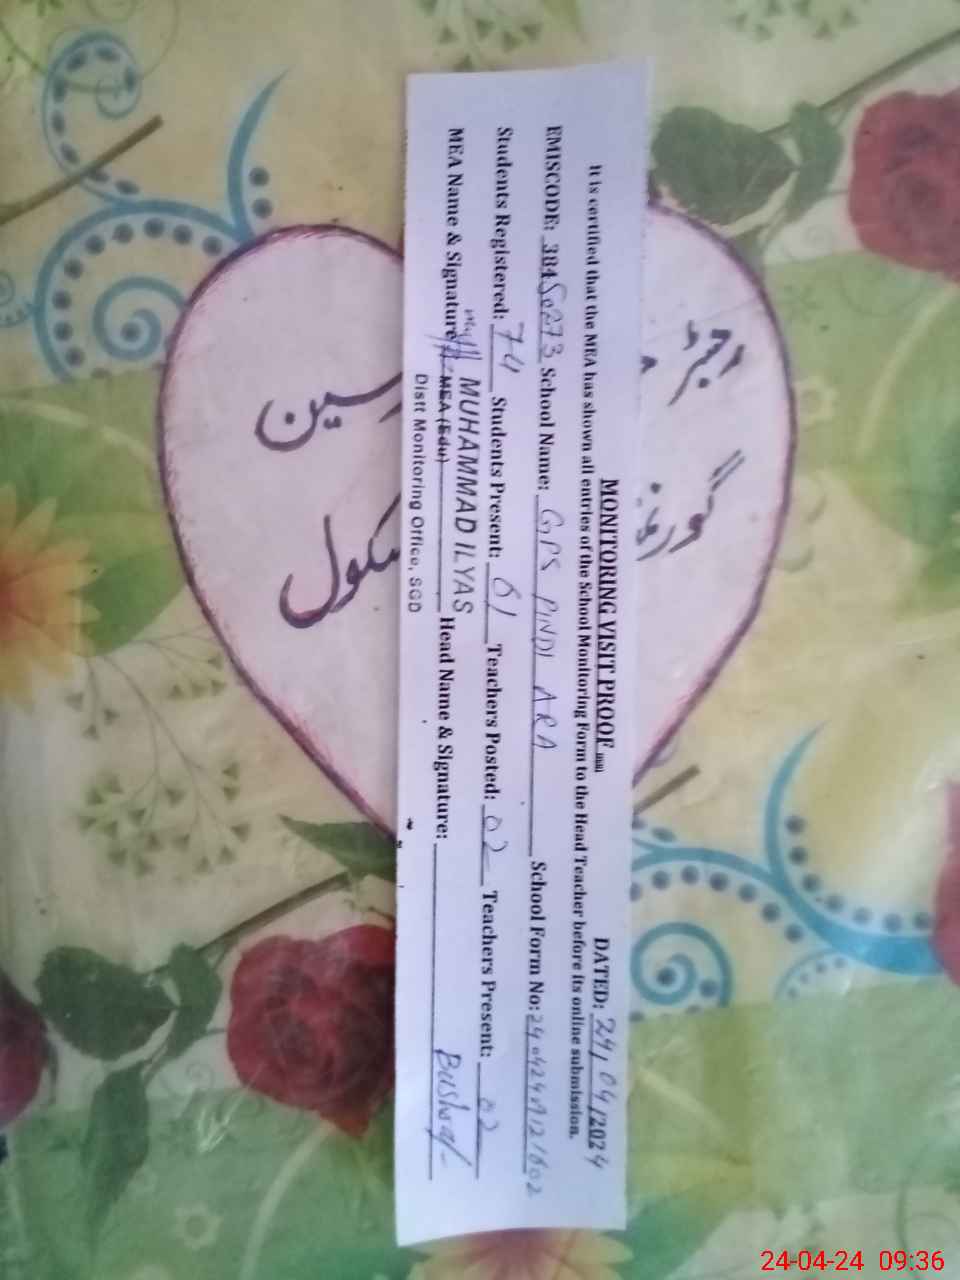 MONITORING VISIT PROOF
DATED: 24, 04, 2024
It is certified that the MEA has shown all entries of the School Monitoring Form to the Head Teacher before its online submission.
EMISCODE: 38450273 School Name: GPS PINDI ARA School Form No: 240424A121602
Students Registered: 74 Students Present: 61 Teachers Posted: 02 Teachers Present: 02
MEA Name & Signature MUHAMMAD ILYAS Head Name & Signature: Bushra
MEA (Edu)
Distt Monitoring Office, SGD
سکول
24-04-24 09:36